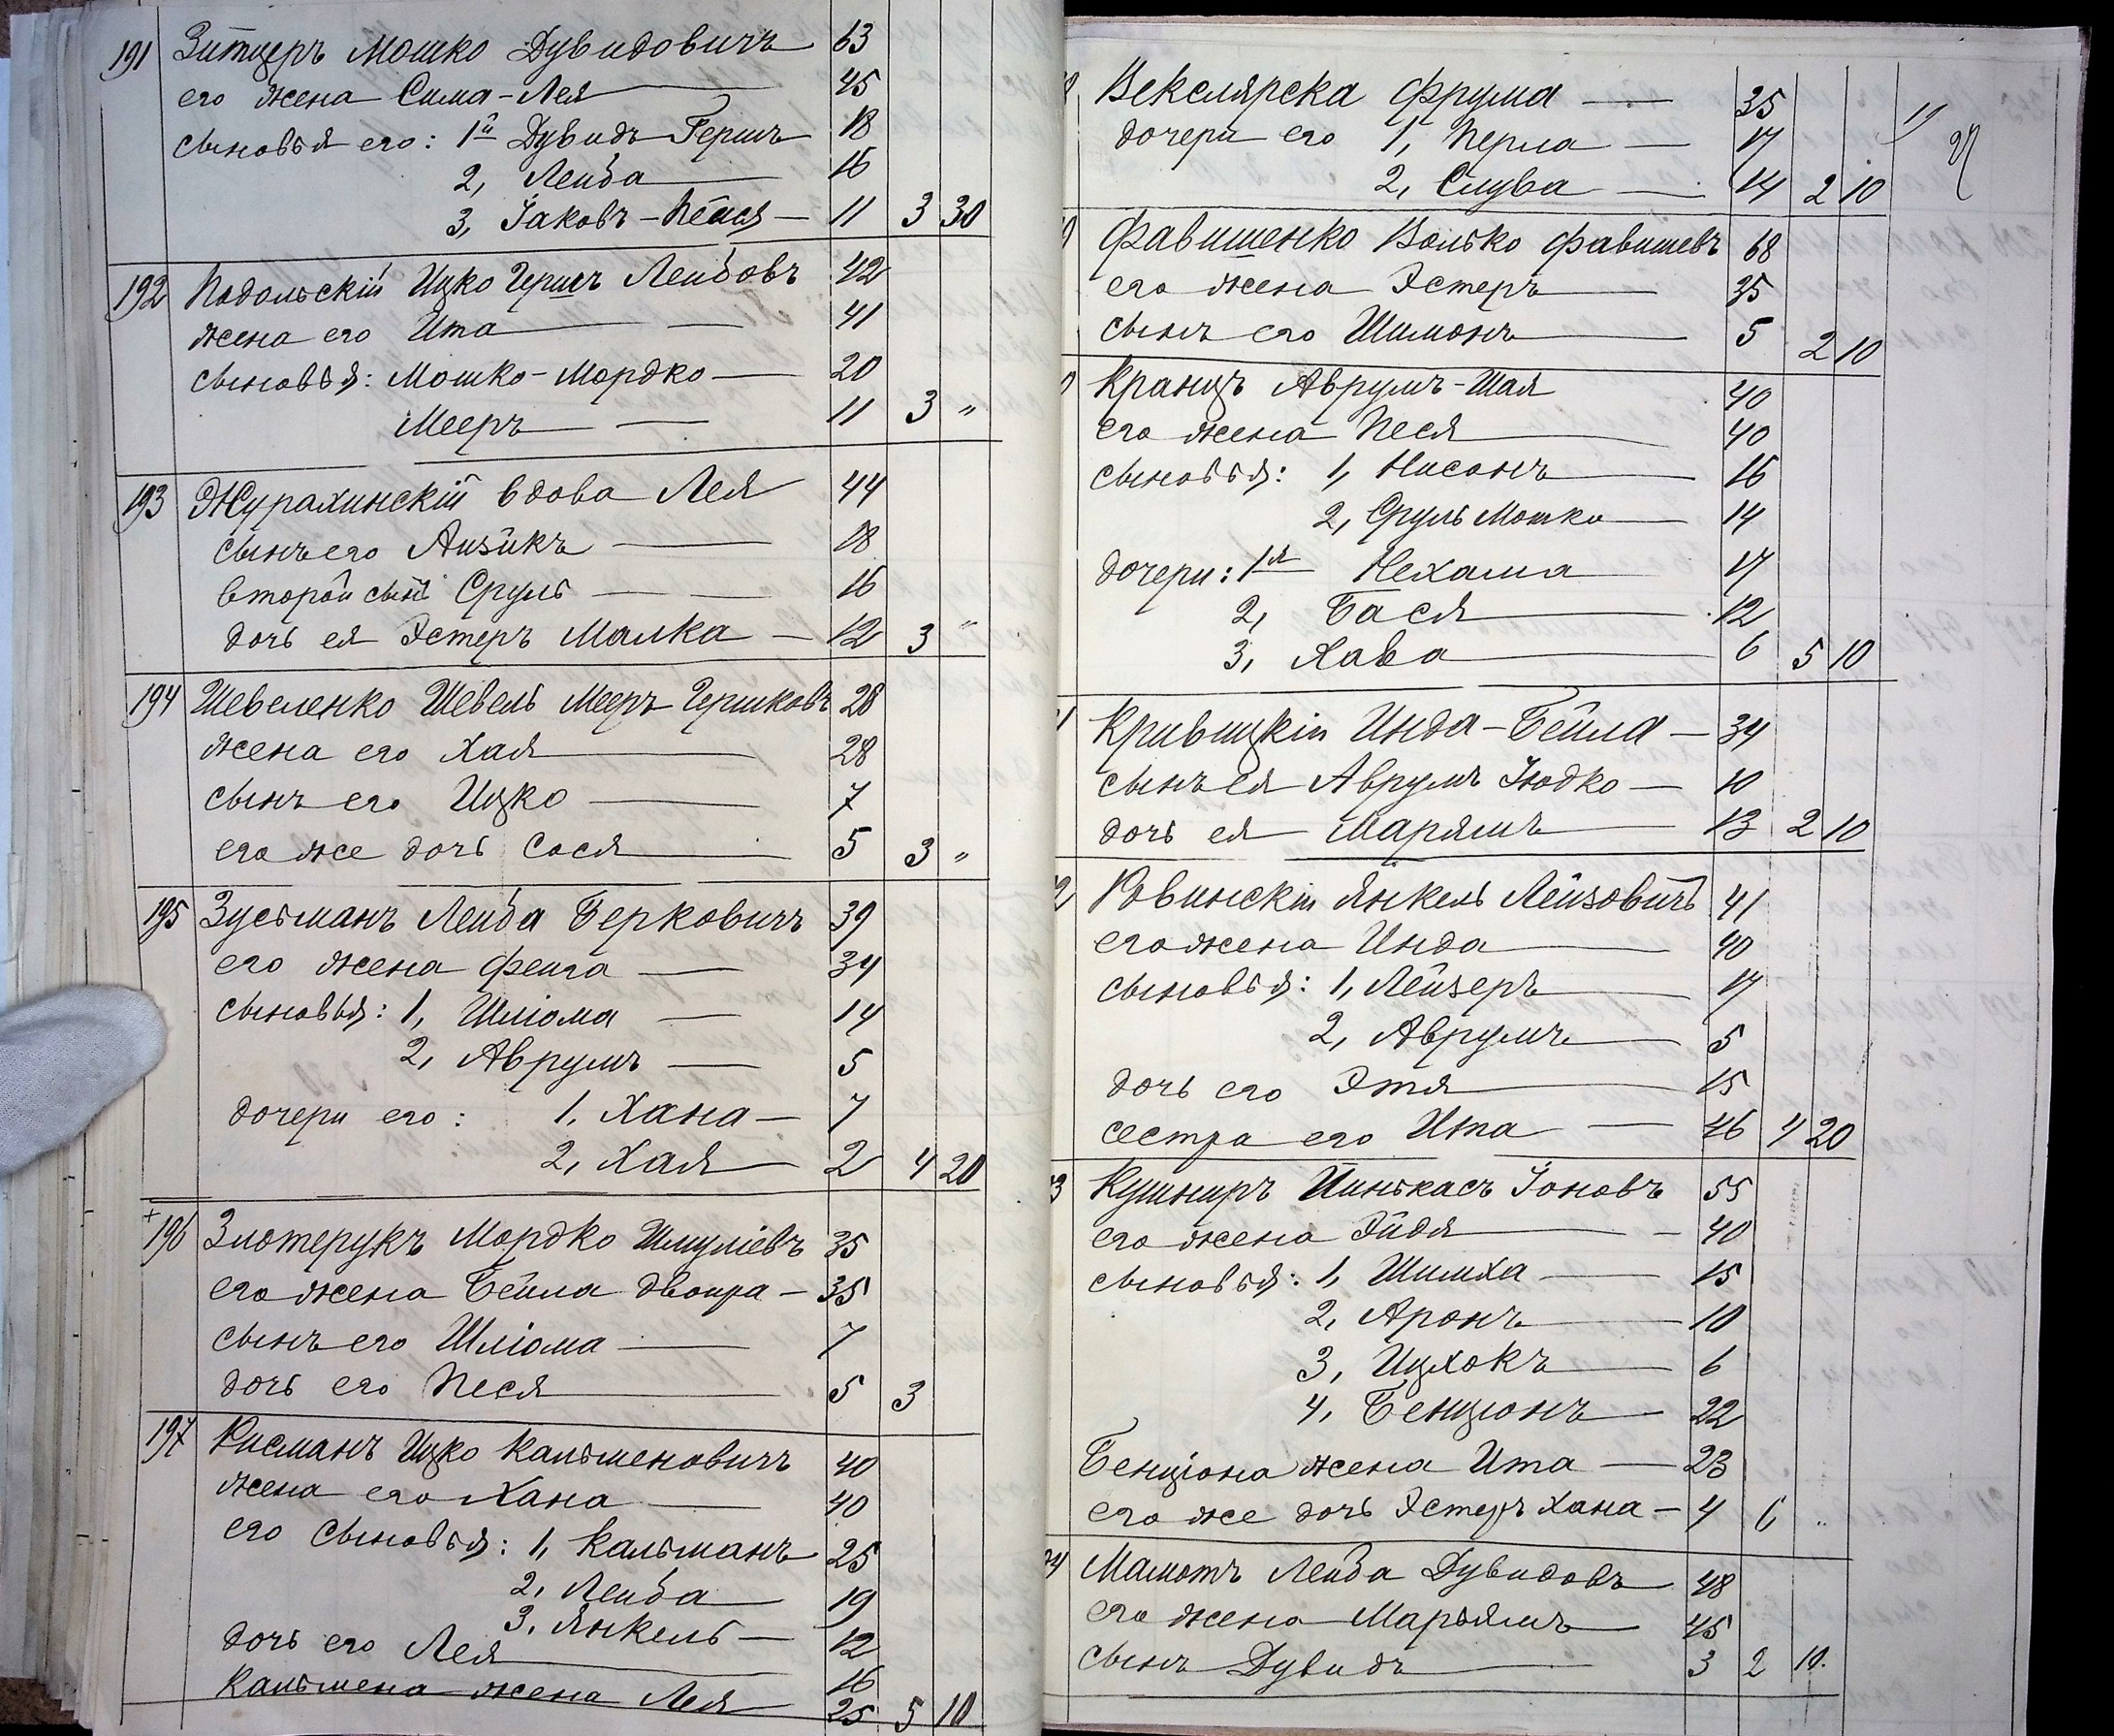 191 Зитцеръ Мошко Дувидовичъ 63
его жена Сима-Лея 45
сыновья его: 1й Дувидъ Гершъ 18
2, Лейба 16
3, Іаковъ - 11 3 30
192 Подольскій Ицко Гершъ Лейбовъ 42
жена его Ита 41
сыновья: Мошко-Мордко 20
Мееръ 11 3 "
193 Журахинскій вдова Лея 44
сынъ его Айзикъ 18
второй сынъ Сруль 16
дочь ея Эстеръ Малка 12 3 "
194 Шевеленко Шевель Мееръ Гершковъ 28
жена его Хая 28
сынъ его Ицко 7
его же дочь Сося 5 3 "
195 Зусьманъ Лейба Берковичъ 39
его жена Фейга 34
сыновья: 1, Шліома 14
2, Аврумъ 5
дочери его: 1, Хана 7
2, Хая 2 4 20
+
196 Злотерукъ Мордко Шмуліевъ 35
его жена Бейла Двойра 35
сынъ его Шліома 7
дочь его Песя 5 3
197 Рисманъ Ицко Кальменовичъ 40
жена его Хана 40
его сыновья: 1, Кальманъ 25
2, Лейба 19
3, Янкель 12
дочь его Лея 16
Кальмена жена Лея 25 5 10
Векслярска Фрума 35
дочери его 1, Перла 17
2, Слува 14 2 10
Фавишенко Волько Фавишевъ 68
его жена Эстеръ 35
сынъ его Шимонъ 5 2 10
Кранцъ Аврумъ-Шая 40
его жена Песя 40
сыновья: 1, Нисонъ 16
2, Сруль Мошко 14
дочери: 1я Нехама 17
2, Бася 12
3, Хава 6 5 10
Кривицкій Инда-Бейла 34
сынъ ея Аврумъ Іюдко 10
дочь ея Марямъ 13 2 10
Ровинскій Янкель Лейзовичъ 41
его жена Инда 40
сыновья: 1, Лейзеръ 17
2, Аврумъ 5
дочь его Этя 15
сестра его Ита 46 4 20
3 Кушниръ Пинькасъ Іоновъ 55
его жена Эйдя 40
сыновья: 1, Шимха 15
2, Аронъ 10
3, Ицхокъ 6
4, Бенціонъ 22
Бенціона жена Ита 23
его же дочь Эстеръ Хана 4 6 "
4 Мамотъ Лейба Дувидовъ 48
его жена Марьямъ 45
сынъ Дувидъ 3 2 10.